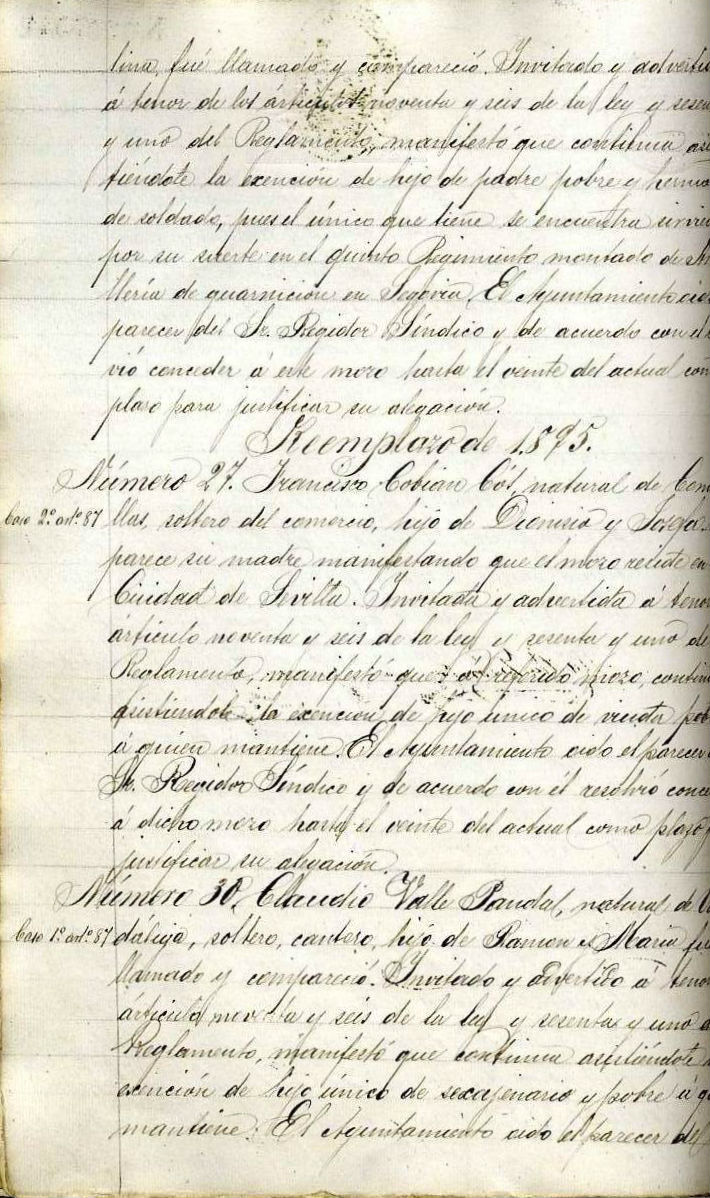 lina, fué llamado y compareció. Invitado y advertido
á tenor de los ártículos noventa y seis de la ley y sesen
y uno del Reglamento, manifestó que continua asis
tiéndole la exención de hijo de padre pobre y herma
de soldado, pues el único que tiene se encuentra sirvie
por su suerte en el quinto Regimiento montado de Ar
llería de guarnición en Segovia. El Ayuntamiento oido
parecer del Sr. Regidor Síndico y de acuerdo con él
vió conceder á este mozo hasta el veinte del actual com
plazo para justificar su alegación.
Reemplazo de 1.895.
Número 27. Francisco Cobian Cós, natural de Comi
Caso 2º artº 87
llas, soltero del comercio, hijo de Dionisio y Josefa.
parece su madre manifestando que el mozo reside en
Ciudad de Sevilla. Invitada y advertida á tenor
ártículo noventa y seis de la ley y sesenta y uno de
Reglamento, manifestó que al referido mozo, contin
asistiendole la exención de hijo único de viuda pob
á quien mantiene. El Ayuntamiento oido el parecer
Sr. Regidor Síndico y de acuerdo con él resolvió conce
á dicho mozo hasta el veinte del actual como plazo p
justificar su alegación.
Número 30. Claudio Valle Pandal, natural de
Caso 1º artº 87
dáliga, soltero, cantero, hijo de Ramon y Maria fué
llamado y compareció. Invitado y divertido á tenor
ártículo noventa y seis de la ley y sesenta y uno d
Reglamento, manifestó que continua asistiéndole
exención de hijo único de sexajenario y pobre á q
mantiene. El Ayuntamiento oido el parecer del